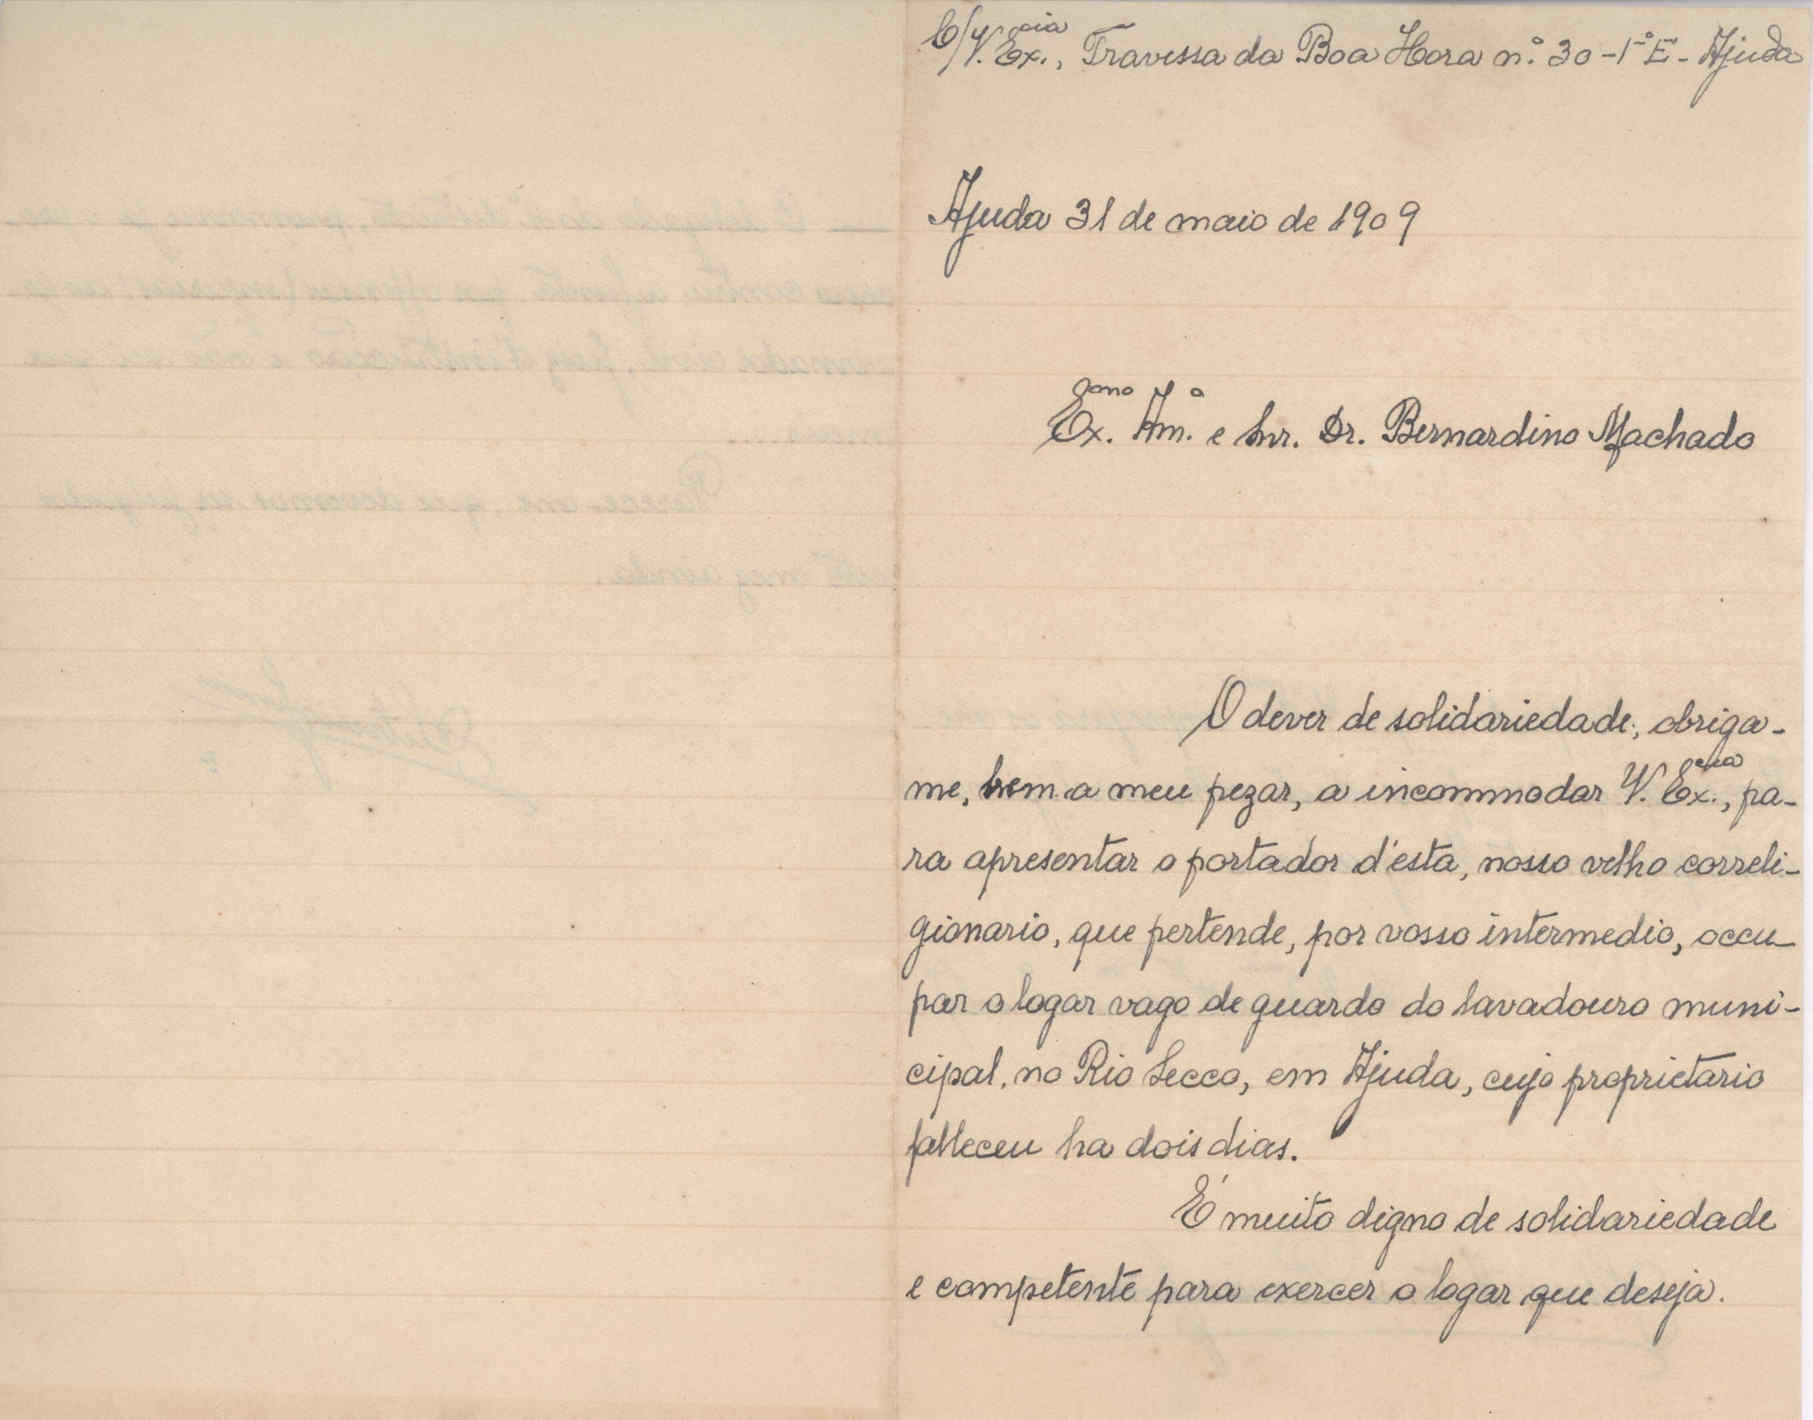 C/V. Ex.cia, Travessa da Boa Hora n.º 30-1º E - Ajuda
Ajuda 31 de maio de 1909
Ex.mo Am.º e Snr. Dr. Bernardino Machado
O dever de solidariedade, obriga-
me, bem a meu pezar, a incommodar V. Ex.cia, pa-
ra apresentar o portador d'esta, nosso velho correli-
gionario, que pertende, por vosso intermedio, occu-
par o logar vago de guarda do lavadouro muni-
cipal, no Rio Secco, em Ajuda, cujo proprietario
falleceu ha dois dias.
É muito digno de solidariedade
e competente para exercer o logar que deseja.